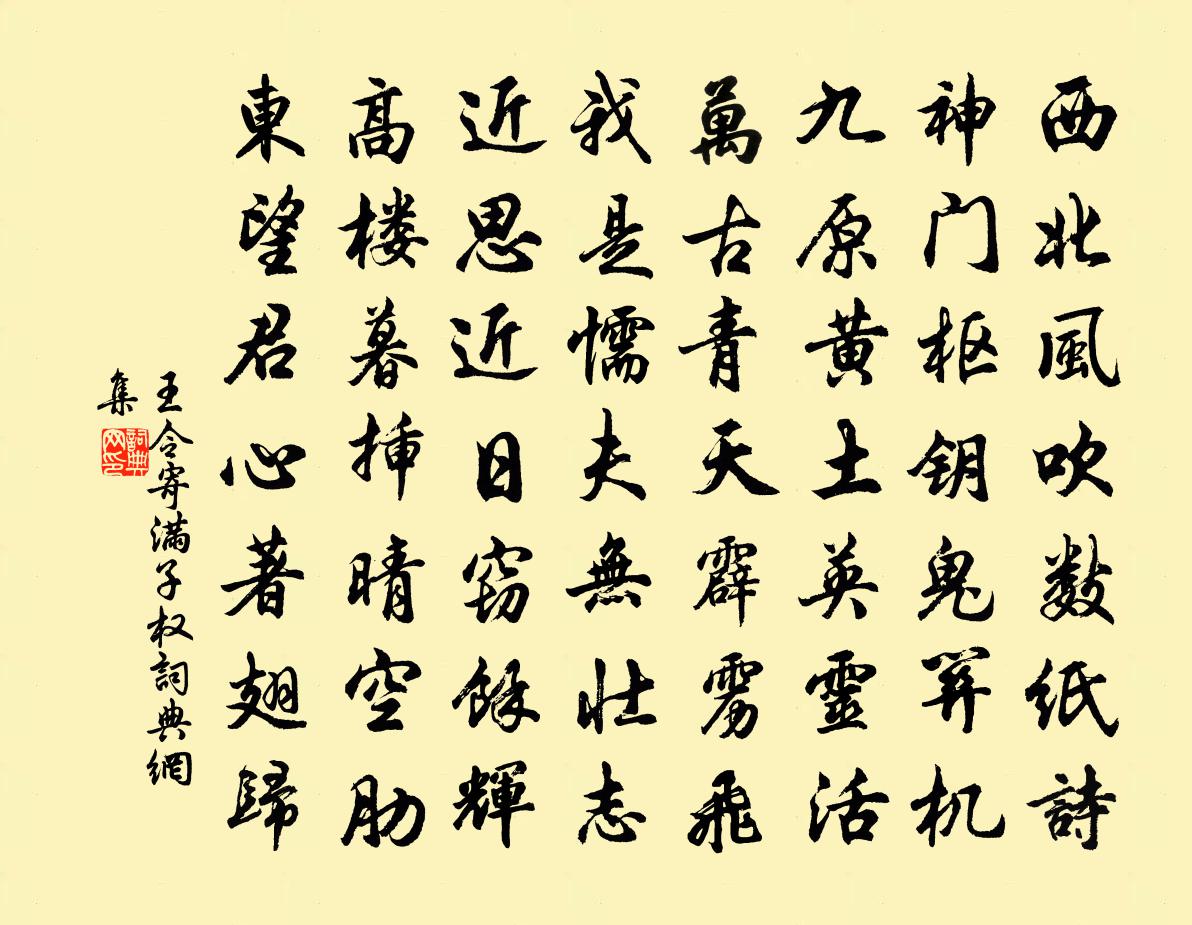 西北風吹数紙詩
神门枢钥鬼箅机
九原黄土英靈活
萬古青天霹雳飛
我是懦夫無壯志
近思近日窃餘輝
髙楼暮揷晴空肋
東望君心著翅歸
王令寄满子权詞典網
集
詞典網印